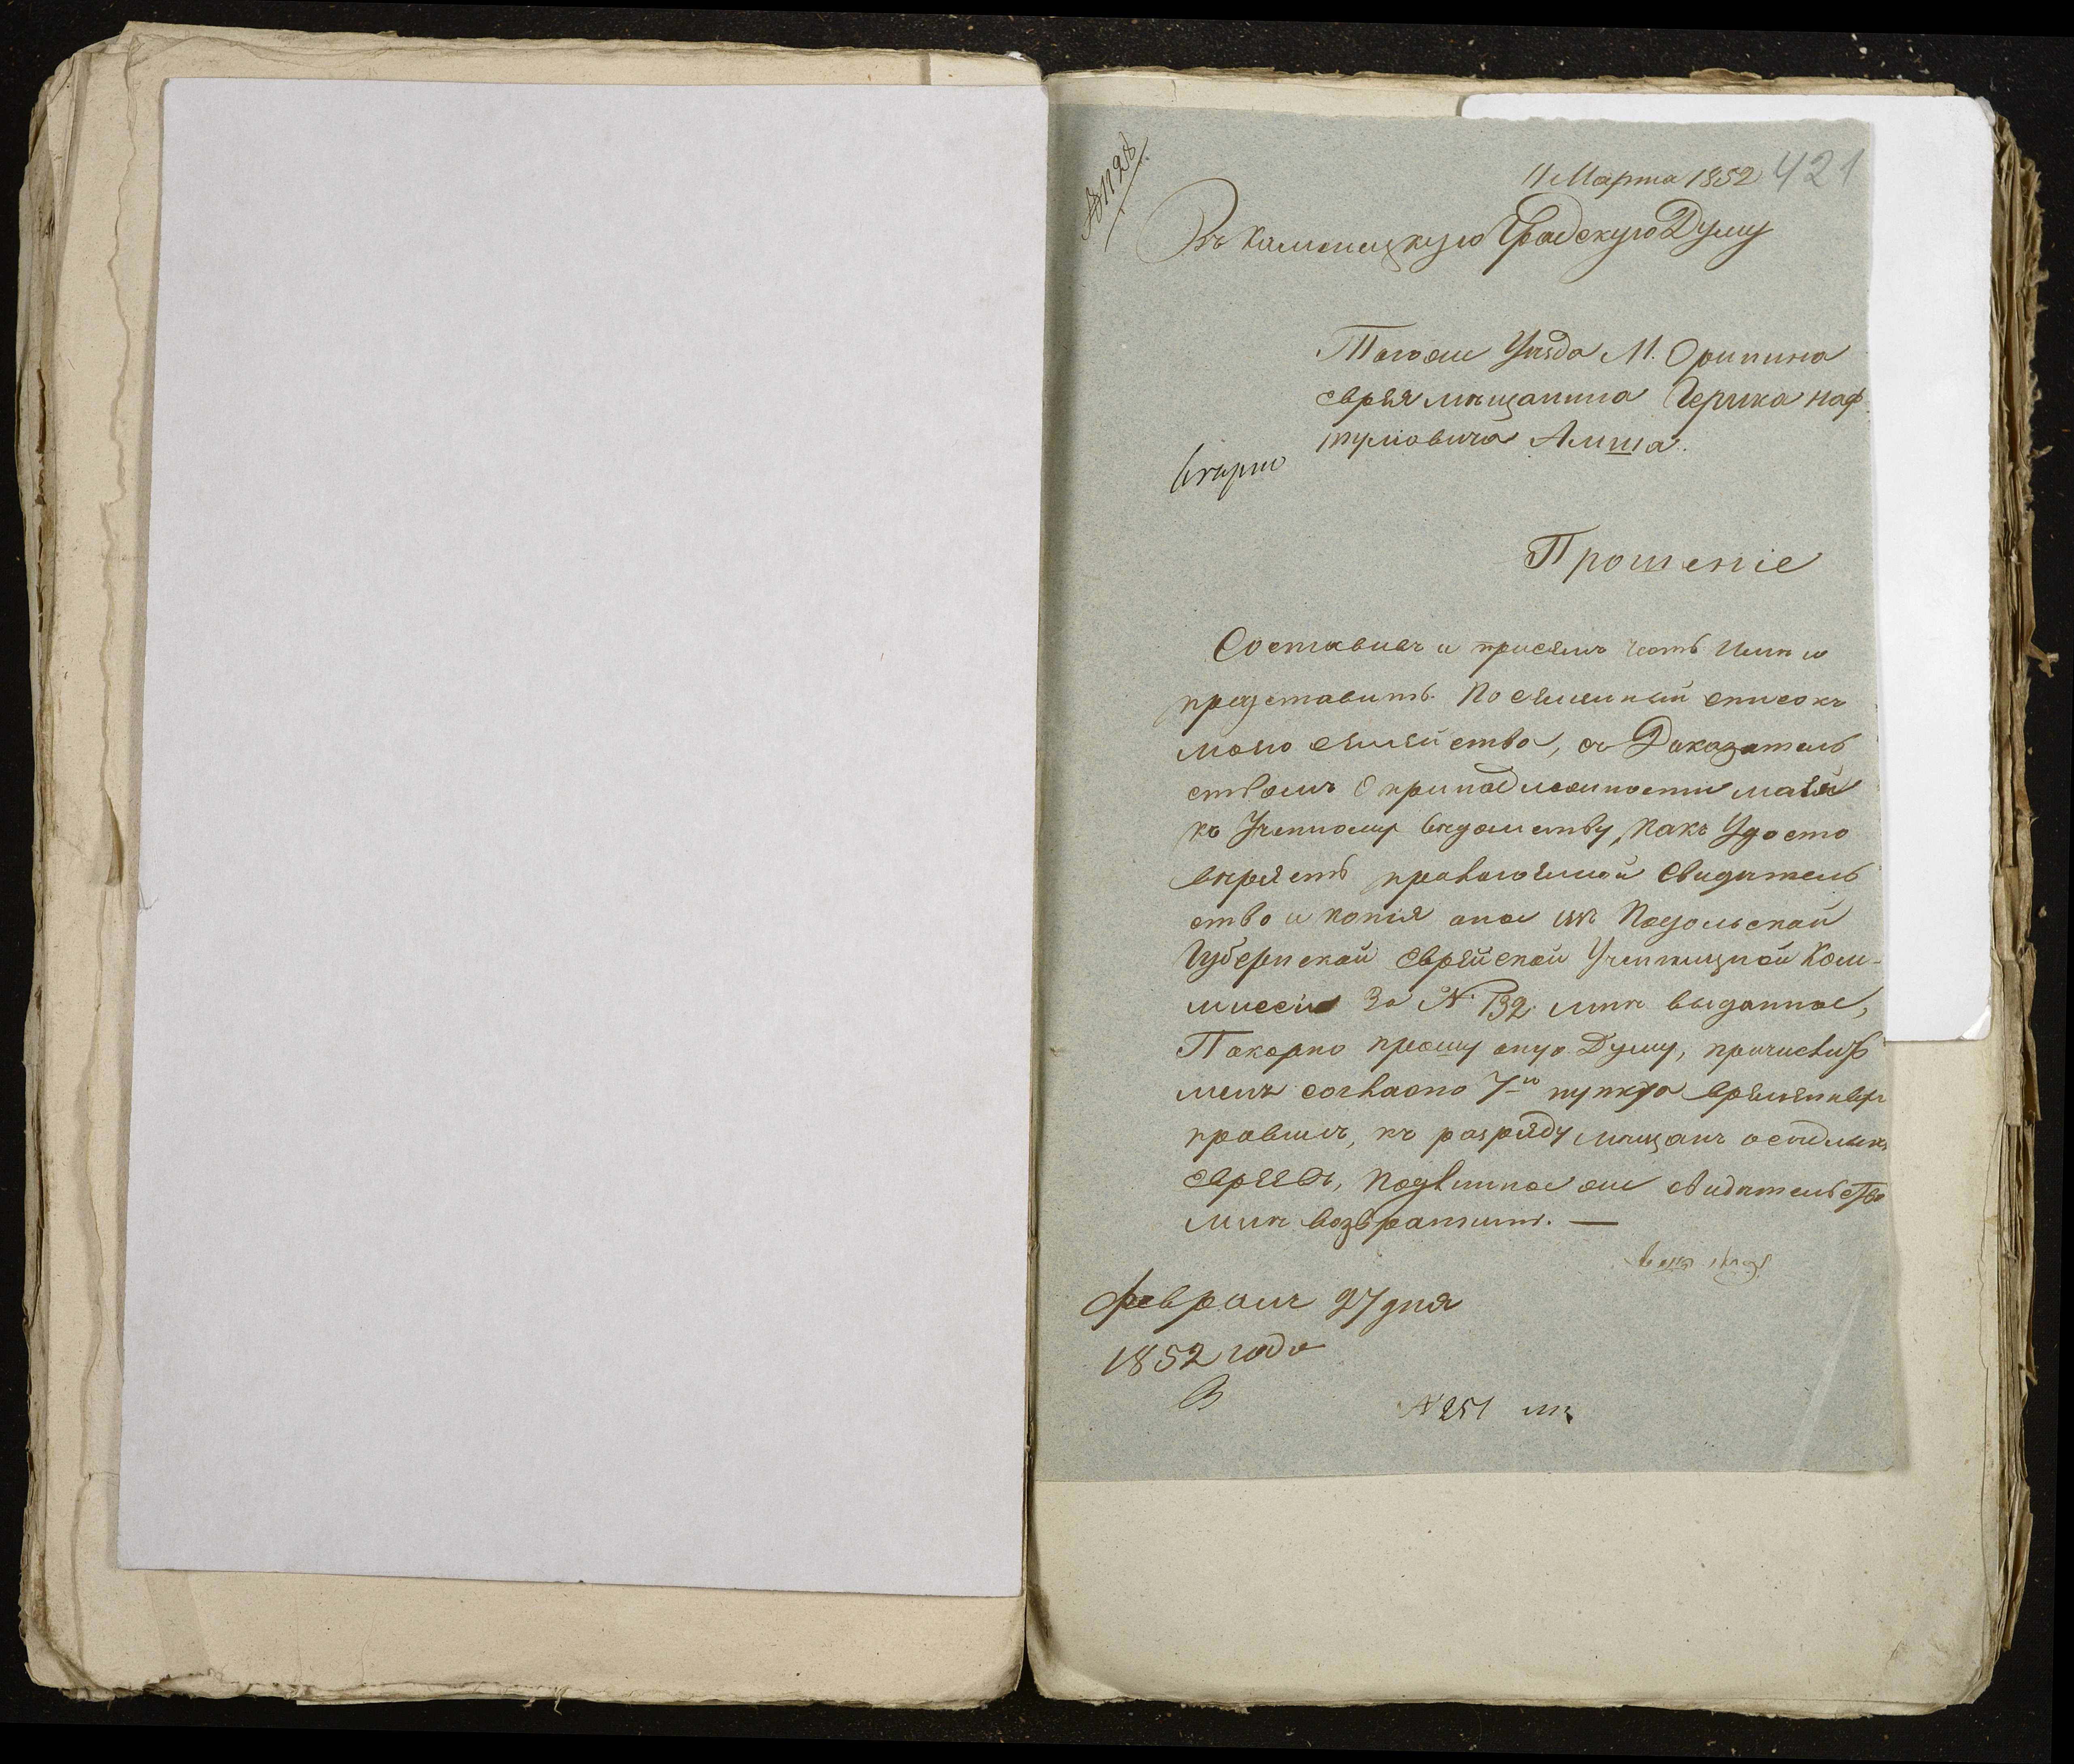 11 Марта 1852 421
Въ Каменецкую Градскую Думу
Тогоже Уѣзда М. Оринина
еврея мѣщанина Гершка Наф
туловича
Прошеніе
Составивъ и присемъ честь имѣю
представить Посемейный списокъ
моего семейства, съ Доказатель
ствомъ О принадлежности моей
къ Учебному вѣдомству, какъ Удосто
вѣряетъ прилагаемое Свидѣтель
ство и копія онаго изъ Подольской
Губернской Еврейской Училищной Ком-
мисіи За № 132 мнѣ выданное,
Покорно прошу оную Думу, причислить
меня согласно 7го пункта временныхъ
правилъ, къ разряду мѣщанъ осѣдлыхъ
евреевъ, Подлинное же свидѣтельство
мнѣ возвратить. —
Февраля 27 дня
1852 года
№ 251